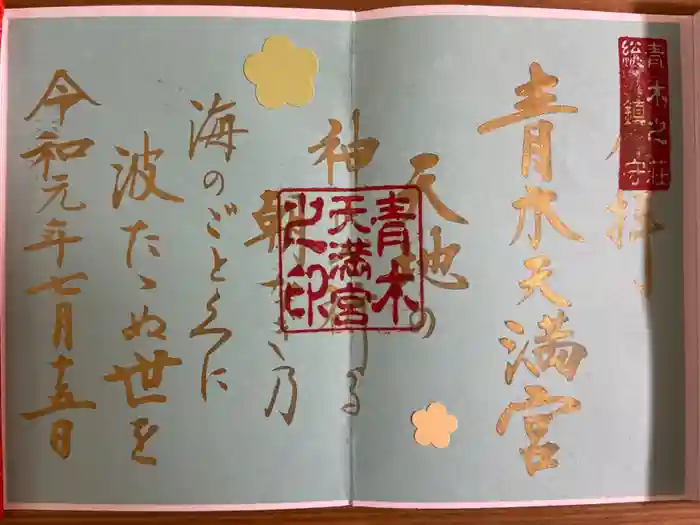 青木之荘
総鎮守
拝
青木天満宮
天地の
神 る
朝な 乃
海のごとくに
波たゝぬ世を
令和元年七月十五日
青木
天満宮
之印